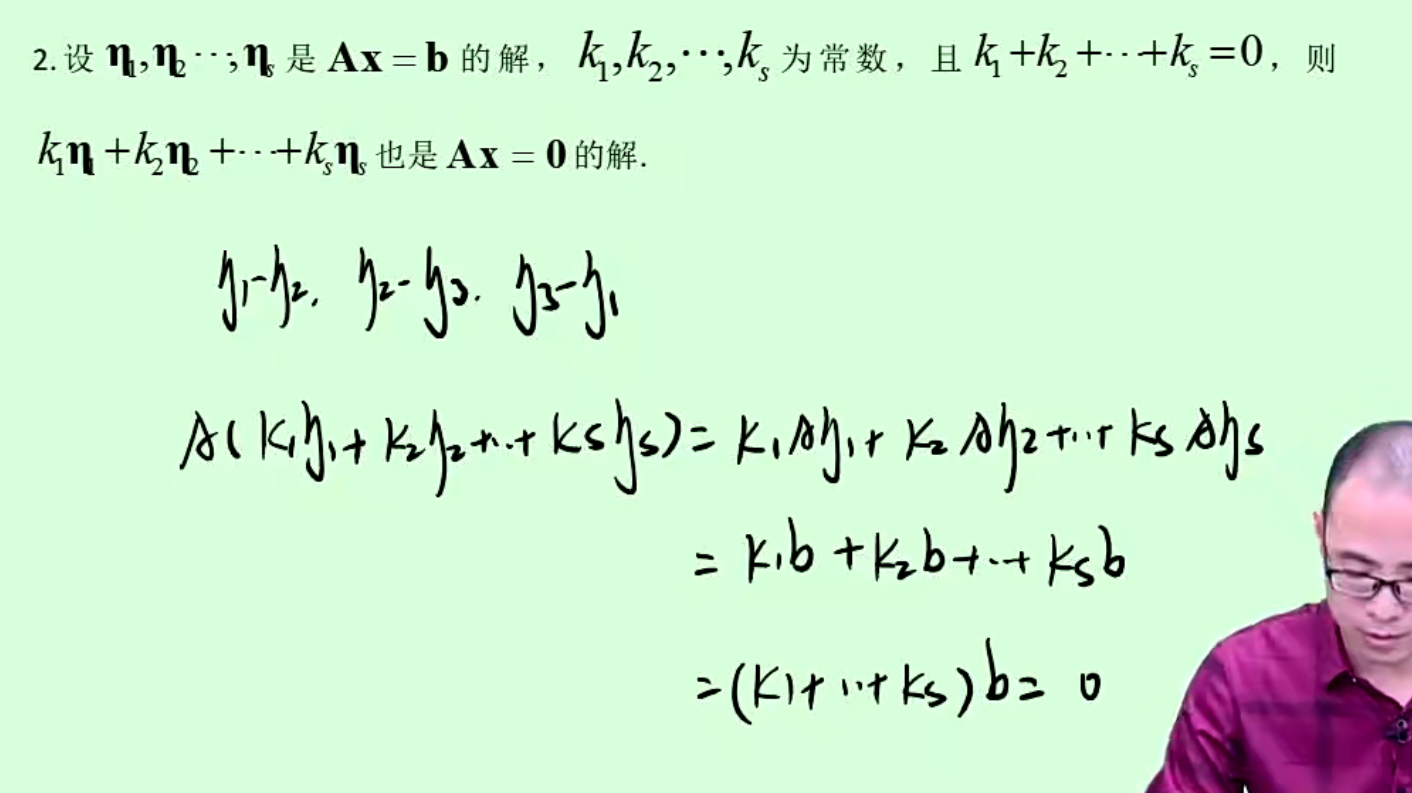 2.设 η₁,η₂⋯,ηₛ 是 Ax=b 的解，k₁,k₂,⋯,kₛ 为常数，且 k₁+k₂+⋯+kₛ=0，则
k₁η₁+k₂η₂+⋯+kₛηₛ 也是 Ax=0 的解.
η₁-η₂. η₂-η₃. η₃-η₁
A(k₁η₁+k₂η₂+⋯+kₛηₛ)=k₁Aη₁+k₂Aη₂+⋯+kₛAηₛ
=k₁b+k₂b+⋯+kₛb
=(k₁+⋯+kₛ)b=0